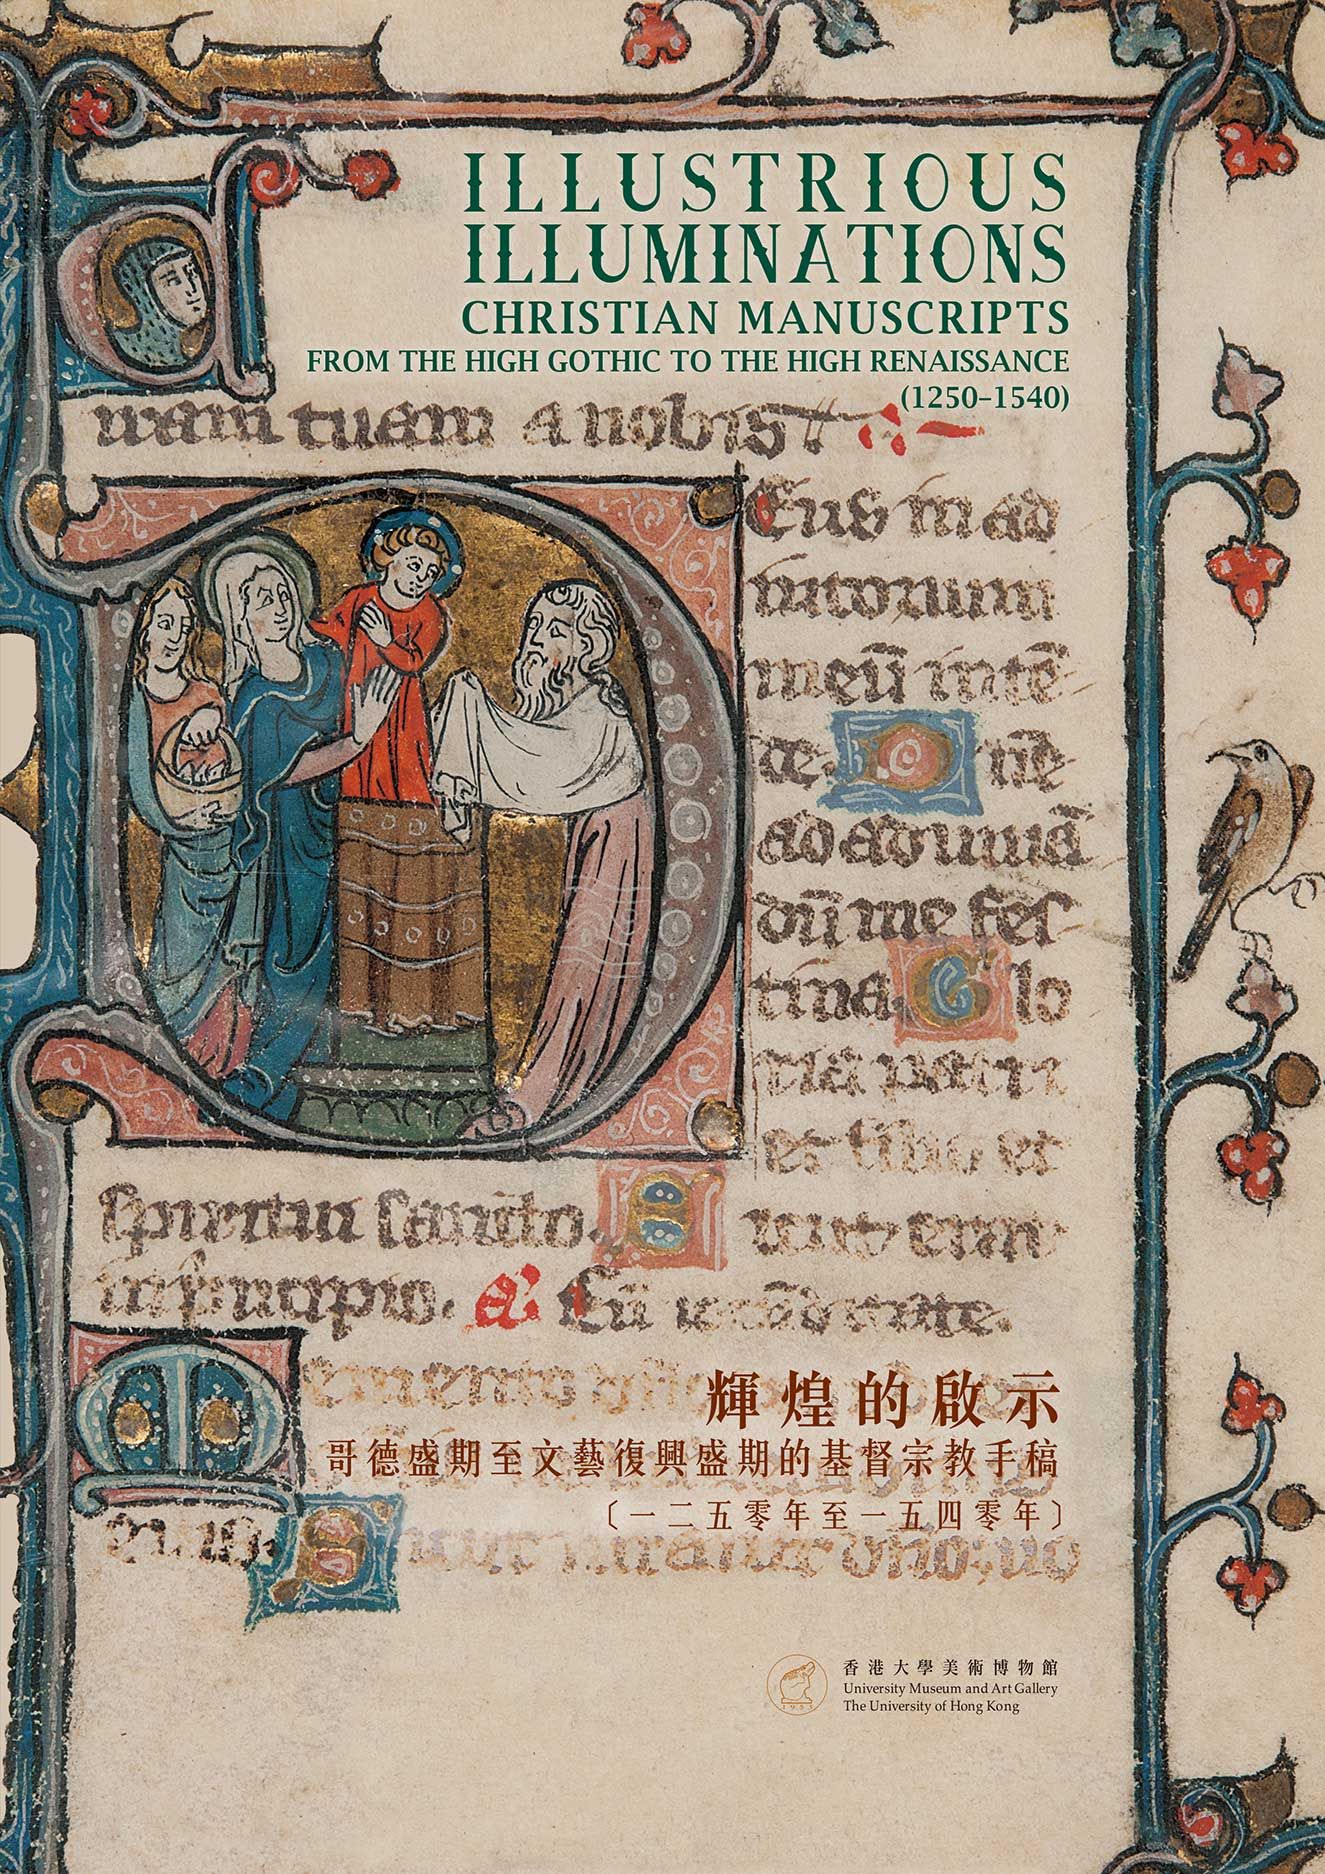 ILLUSTRIOUS
ILLUMINATIONS
CHRISTIAN MANUSCRIPTS
FROM THE HIGH GOTHIC TO THE HIGH RENAISSANCE
(1250–1540)
uram tuam a nobis
Eus in ad
iutorium
meū intē
de. nē
ad adiuuā
dū me fes
tina. Glo
ria patri
et filio et
spiritui sancto. Sicut erat
in principio.
輝煌的啟示
哥德盛期至文藝復興盛期的基督宗教手稿
〔一二五零年至一五四零年〕
香港大學美術博物館
University Museum and Art Gallery
The University of Hong Kong
1953